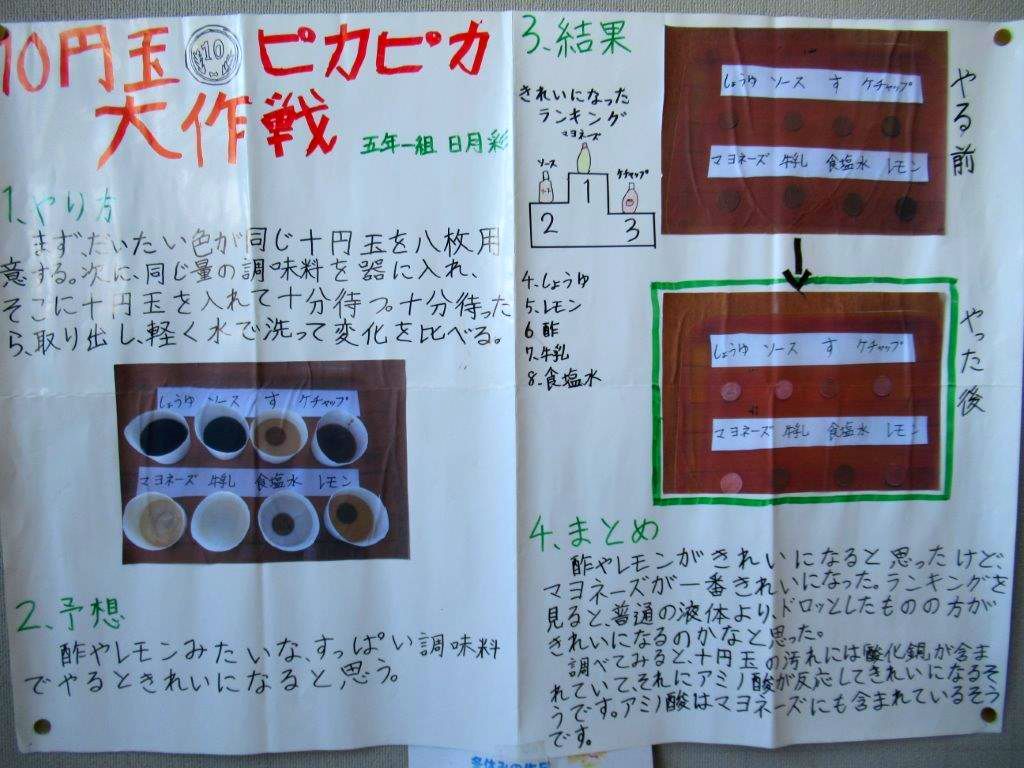 10円玉 10 ピカピカ
大作戦
五年一組 日月彩
1、やり方
まず、だいたい色が同じ十円玉を八枚用
意する。次に、同じ量の調味料を器に入れ、
そこに十円玉を入れて十分待つ。十分待った
ら、取り出し、軽く水で洗って変化を比べる。
しょうゆ ソース す ケチャップ
マヨネーズ 牛乳 食塩水 レモン
2、予想
酢やレモンみたいな、すっぱい調味料
でやるときれいになると思う。
3、結果
きれいになった
ランキング
マヨネーズ
ソース
ケチャップ
1
2
3
4、しょうゆ
5、レモン
6 酢
7、牛乳
8、食塩水
しょうゆ ソース す ケチャップ
マヨネーズ 牛乳 食塩水 レモン
やる前
しょうゆ ソース す ケチャップ
マヨネーズ 牛乳 食塩水 レモン
やった後
4、まとめ
酢やレモンがきれいになると思ったけど、
マヨネーズが一番きれいになった。ランキングを
見ると、普通の液体より、ドロッとしたものの方が
きれいになるのかなと思った。
調べてみると、十円玉の汚れには「酸化銅」が含ま
れていて、それにアミノ酸が反応してきれいになるそ
うです。アミノ酸はマヨネーズにも含まれているそう
です。
冬休みの作品